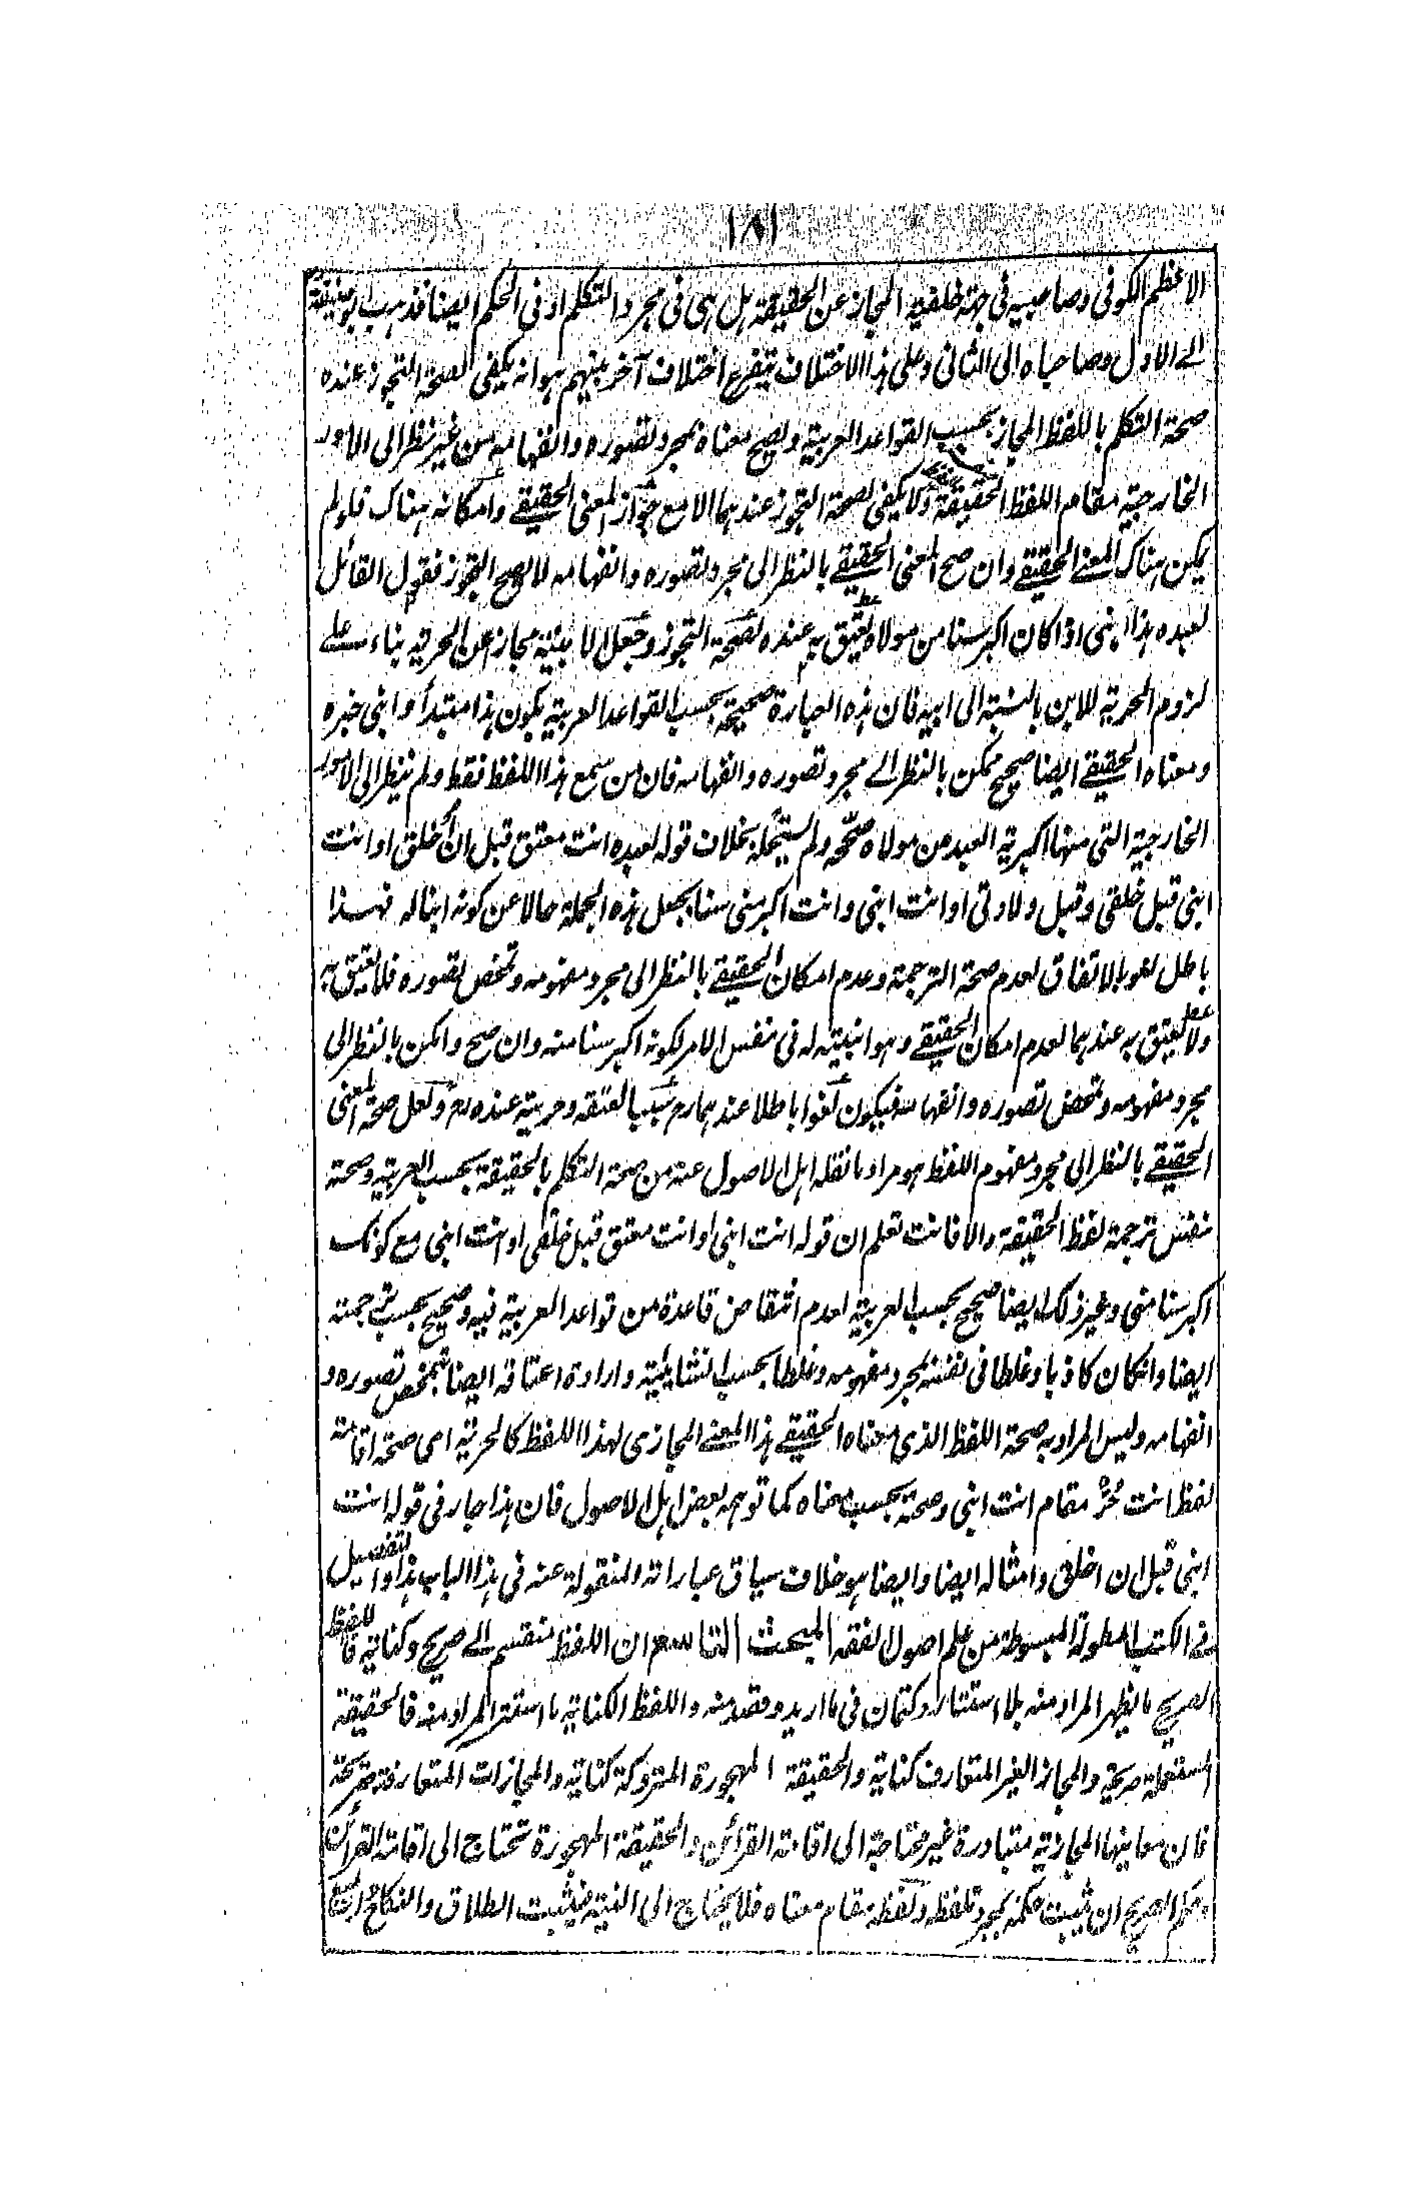 ١٨١
الاعظم الكوفى وصاحبيه فى جهة خلفية المجاز عن الحقيقة هل هى فى مجرد التكلم او فى الحكم ايضا فذهب ابو حنيفة
الے الاول وصاحباه الى الثانى وعلى هذا الاختلاف يتفرع اختلاف آخر بينهم هو انه يكفى لصحة التجوز عنده
صحة التكلم باللفظ المجاز بحسب القواعد العربية وتصح معناه بمجرد تصوره وانفهامه من غير نظر الى الامور
الخارجية مقام اللفظ الحقيقة ولا يكفى لصحة التجوز عندهما الا مع جواز المعنى الحقيقے وامكانه هناك فلو لم
يكن هناك المعنے الحقيقے وان صح المعنى الحقيقے بالنظر الى مجرد تصوره وانفهامه لا يصح التجوز فقول القائل
لعبده هذا ابنى اذا كان اكبر سنا من مولاه يعتق به عنده لصحة التجوز وجعل الابنية مجازا عن الحرية بناء علے
لزوم الحرية للابن بالنسبة الى ابيه فان هذه العبارة صحيحة بحسب القواعد العربية بكون هذا مبتدأ وابنى خبره
ومعناه الحقيقے ايضا صحيح ممكن بالنظر الے مجرد تصوره وانفهامه فان من سمع هذا اللفظ فقط ولم ينظر الى الامور
الخارجية التى منها اكبرية العبد من مولاه صححه ولم يستحله بخلاف قوله لعبده انت معتق قبل ان اخلق او انت
ابنى قبل خلقى وقبل ولادتى او انت ابنى وانت اكبر منى سنا بجعل هذه الجملة حالا عن كونه ابنا له فهذا
باطل لغو بالاتفاق لعدم صحة الترجمة وعدم امكان الحقيقے بالنظر الى مجرد مفهومه ومحض تصوره فلا يعتق به
ولا يعتق به عندهما لعدم امكان الحقيقے وهو ابنيته له فى نفس الامر لكونه اكبر سنا منه وان صح وامكن بالنظر الى
مجرد مفهومه ومحض تصوره وانفهامه فيكون لغوا باطلا عندهما رح سببا لعتقه وحريته عنده رح ولعل صحة المعنى
الحقيقے بالنظر الى مجرد مفهوم اللفظ هو مراد ما نقله اهل الاصول عنه من صحة التكلم بالحقيقة بحسب العربية وصحة
نفس ترجمة لفظ الحقيقة والا فانت تعلم ان قوله انت ابنى او انت معتق قبل خلقى او انت ابنى مع كونك
اكبر سنا منى وغير ذلك ايضا صحيح بحسب العربية لعدم انتقاض قاعدة من قواعد العربية فيه وصحيح بحسب ترجمته
ايضا وان كان كاذبا وغلطا فى نفسه لمجرد مفهومه وغلطا بحسب انشائيته وارادة اعتاقه ايضا بمحض تصوره و
انفهامه وليس المراد به صحة اللفظ الذى معناه الحقيقے هذا المعنے المجازى لهذا اللفظ كالحرية اى صحة اقامة
لفظ انت حُرٌّ مقام انت ابنى وصحة بحسب معناه كما توهمه بعض اهل الاصول فان هذا جار فى قوله انت
ابنى قبل ان اخلق وامثاله ايضا وايضا هو خلاف سياق عباراته المنقولة عنه فى هذا الباب هذا والتفصيل
فے الكتب المطولة المبسوطة من علم اصول الفقه المبحث التاسع ان اللفظ منقسم الے صريح وكناية فاللفظ
الصريح ما يظهر المراد منه بلا استتار وكتمان فى ما اريد وقصد منه واللفظ الكناية ما استتر المراد منه فالحقيقة
المستعملة صريحة والمجاز الغير المتعارف كناية والحقيقة المهجورة المتروكة كناية والمجازات المتعارفة صريحة
فان معانيها المجازية متبادرة غير محتاجة الى اقامة القرائن والحقيقة المهجورة تحتاج الى اقامة القرائن
وحكم الصريح ان يثبت حكمه بمجرد تلفظه ولفظه مقام معناه فلا يحتاج الى النية فيثبت الطلاق والنكاح